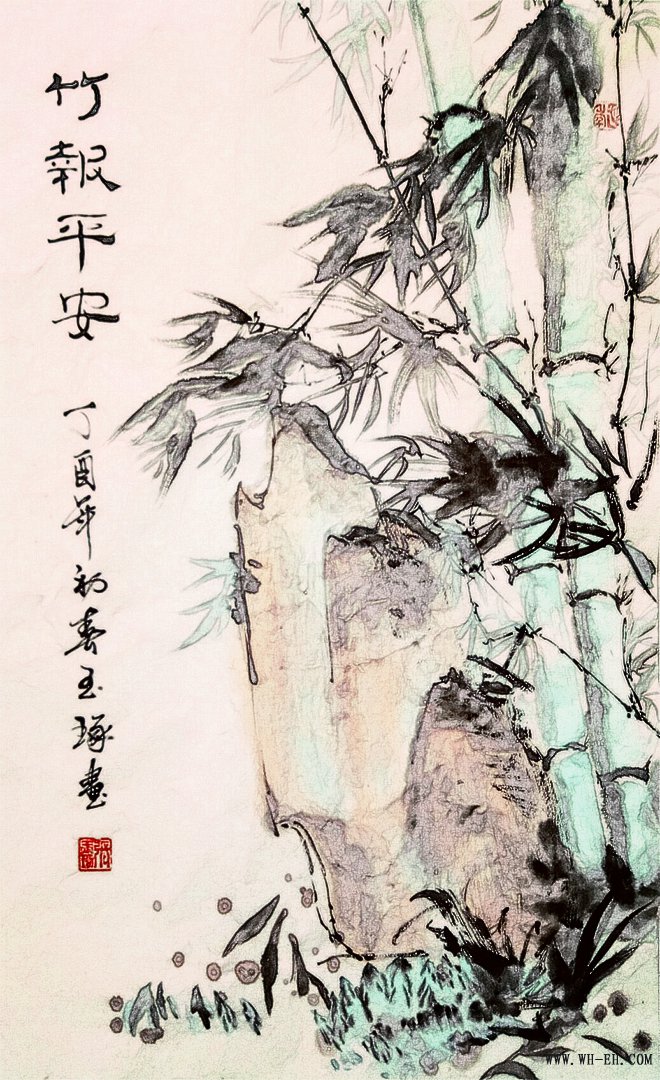 竹報平安
丁酉年初春玉琢畫
WWW.WH-EH.COM